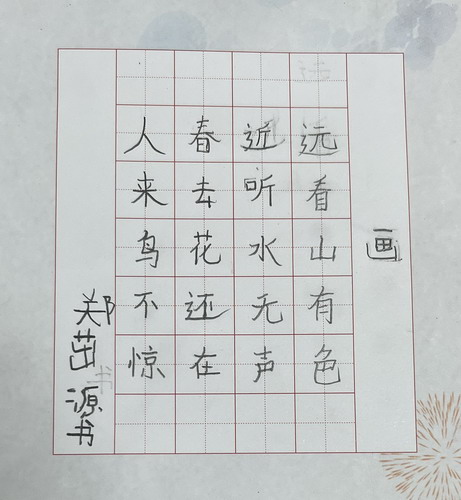 画
远看山有色
近听水无声
春去花还在
人来鸟不惊
郑茁源书